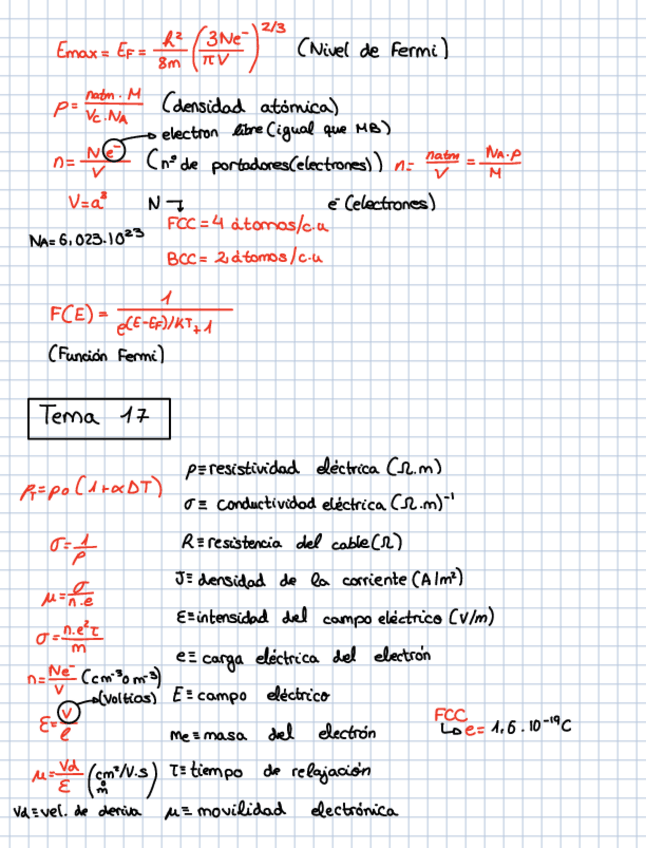 Emax = E_F = h²/8m (3Ne⁻/πV)^2/3 (Nivel de Fermi)
ρ = natm · M / Vc · NA (densidad atómica)
electron libre (igual que MB)
n = Ne⁻/V (nº de portadores (electrones)) n = natm/V = NA·ρ/M
V = a³ N e⁻ (electrones)
NA = 6,023·10²³ FCC = 4 átomos/c.u
BCC = 2 átomos/c.u
F(E) = 1/e^(E-E_F)/KT + 1
(Función Fermi)
Tema 17
ρ_T = ρ0 (1+αΔT) ρ≡resistividad eléctrica (Ω.m)
σ ≡ conductividad eléctrica (Ω.m)⁻¹
σ = 1/ρ R≡resistencia del cable (Ω)
μ = σ/n.e J≡ densidad de la corriente (A/m²)
σ = n.e²τ/m Ɛ≡intensidad del campo eléctrico (V/m)
e ≡ carga eléctrica del electrón
n = Ne⁻/V (cm⁻³ o m⁻³)
Ɛ = V/l (Voltios) E ≡ campo eléctrico
me ≡ masa del electrón FCC
e = 1,6·10⁻¹⁹ C
μ = Vd/Ɛ (cm²/V.s) m τ ≡ tiempo de relajación
Vd ≡ vel. de deriva μ ≡ movilidad electrónica